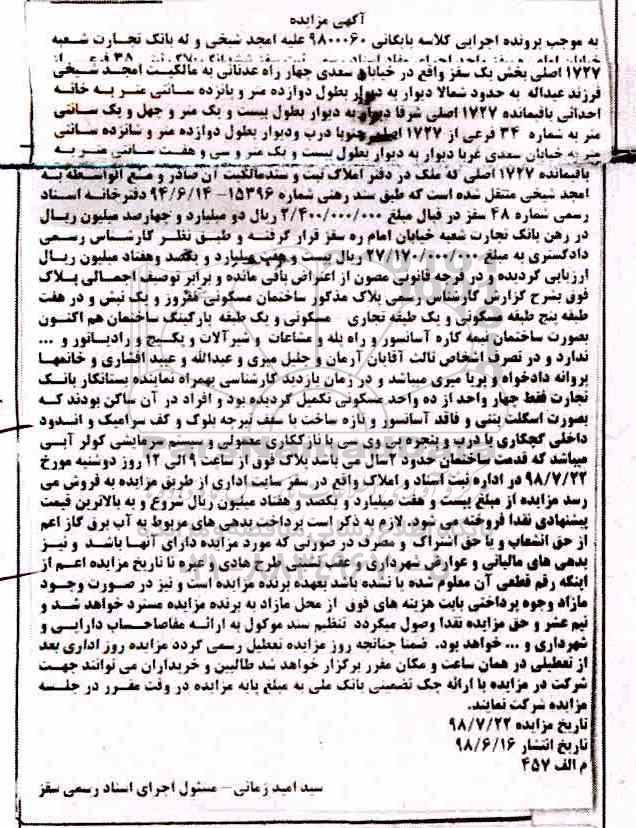 آگهی مزایده
به موجب پرونده اجرایی کلاسه بایگانی ۹۸۰۰۰۶۰ علیه امجد شیخی و له بانک تجارت شعبه
۱۷۲۷ اصلی بخش یک سقز واقع در خیابان سعدی چهار راه عدنانی به مالکیت امجد شیخی
فرزند عبداله به حدود شمالا دیوار به دیوار بطول دوازده متر و پانزده سانتی متر به خانه
احداثی باقیمانده ۱۷۲۷ اصلی شرقا دیوار به دیوار بطول بیست و یک متر و چهل و یک سانتی
متر به شماره ۳۴ فرعی از ۱۷۲۷ اصلی جنوبا درب ودیوار بطول دوازده متر و شانزده سانتی
متر به خیابان سعدی غربا دیوار به دیوار بطول بیست و یک متر و سی و هفت سانتی متر به
باقیمانده ۱۷۲۷ اصلی که ملک در دفتر املاک ثبت و سندمالکیت آن صادر و مع الواسطه به
امجد شیخی منتقل شده است که طبق سند رهنی شماره ۱۵۳۹۶- ۹۴/۶/۱۴ دفترخانه اسناد
رسمی شماره ۴۸ سقز در قبال مبلغ ۲/۴۰۰/۰۰۰/۰۰۰ ریال دو میلیارد و چهارصد میلیون ریال
در رهن بانک تجارت شعبه خیابان امام ره سقز قرار گرفته و طبق نظر کارشناس رسمی
دادگستری به مبلغ ۲۷/۱۷۰/۰۰۰/۰۰۰ ریال بیست و هفت میلیارد و یکصد وهفتاد میلیون ریال
ارزیابی گردیده و در فرجه قانونی مصون از اعتراض باقی مانده و برابر توصیف اجمالی پلاک
فوق بشرح گزارش کارشناس رسمی پلاک مذکور ساختمان مسکونی مفروز و یک نبش و در هفت
طبقه پنج طبقه مسکونی و یک طبقه تجاری مسکونی و یک طبقه پارکینگ ساختمان هم اکنون
بصورت ساختمان نیمه کاره آسانسور و راه پله و مشاعات و شیرآلات و پکیج و رادیاتور و ...
ندارد و در تصرف اشخاص ثالث آقایان آرمان و جلیل میری و عبدالله و عبید افشاری و خانمها
پروانه دادخواه و پریا میری میباشد و در زمان بازدید کارشناسی بهمراه نماینده بستانکار بانک
تجارت فقط چهار واحد از ده واحد مسکونی تکمیل گردیده بود و افراد در آن ساکن بودند که
بصورت اسکلت بتنی و فاقد آسانسور و تازه ساخت با سقف تیرچه بلوک و کف سرامیک و اندود
داخلی گچکاری با درب و پنجره پی وی سی با نازککاری معمولی و سیستم سرمایشی کولر آبی
میباشد که قدمت ساختمان حدود ۲سال می باشد پلاک فوق از ساعت ۹ الی ۱۲ روز دوشنبه مورخ
۹۸/۷/۲۲ در اداره ثبت اسناد و املاک واقع در سقز سایت اداری از طریق مزایده به فروش می
رسد مزایده از مبلغ بیست و هفت میلیارد و یکصد و هفتاد میلیون ریال شروع و به بالاترین قیمت
پیشنهادی نقدا فروخته می شود. لازم به ذکر است پرداخت بدهی های مربوط به آب برق گاز اعم
از حق انشعاب و یا حق اشتراک و مصرف در صورتی که مورد مزایده دارای آنها باشد و نیز
بدهی های مالیاتی و عوارض شهرداری و عقب نشینی طرح هادی و غیره تا تاریخ مزایده اعم از
اینکه رقم قطعی آن معلوم شده یا نشده باشد بعهده برنده مزایده است و نیز در صورت وجود
مازاد وجوه پرداختی بابت هزینه های فوق از محل مازاد به برنده مزایده مسترد خواهد شد و
نیم عشر و حق مزایده نقدا وصول میگردد تنظیم سند موکول به ارائه مفاصاحساب دارایی و
شهرداری و ... خواهد بود. ضمنا چنانچه روز مزایده تعطیل رسمی گردد مزایده روز اداری بعد
از تعطیلی در همان ساعت و مکان مقرر برگزار خواهد شد طالبین و خریداران می توانند جهت
شرکت در مزایده با ارائه چک تضمینی بانک ملی به مبلغ پایه مزایده در وقت مقرر در جلسه
مزایده شرکت نمایند.
تاریخ مزایده ۹۸/۷/۲۲
تاریخ انتشار ۹۸/۶/۱۶
م الف ۴۵۷
سید امید زمانی- مسئول اجرای اسناد رسمی سقز